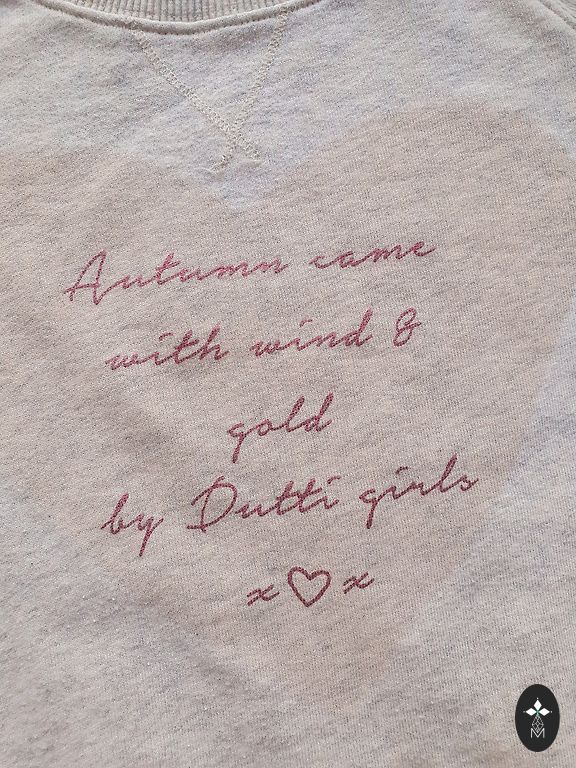 Autumn came
with wind &
gold
by Dutti girls
x♡x
M